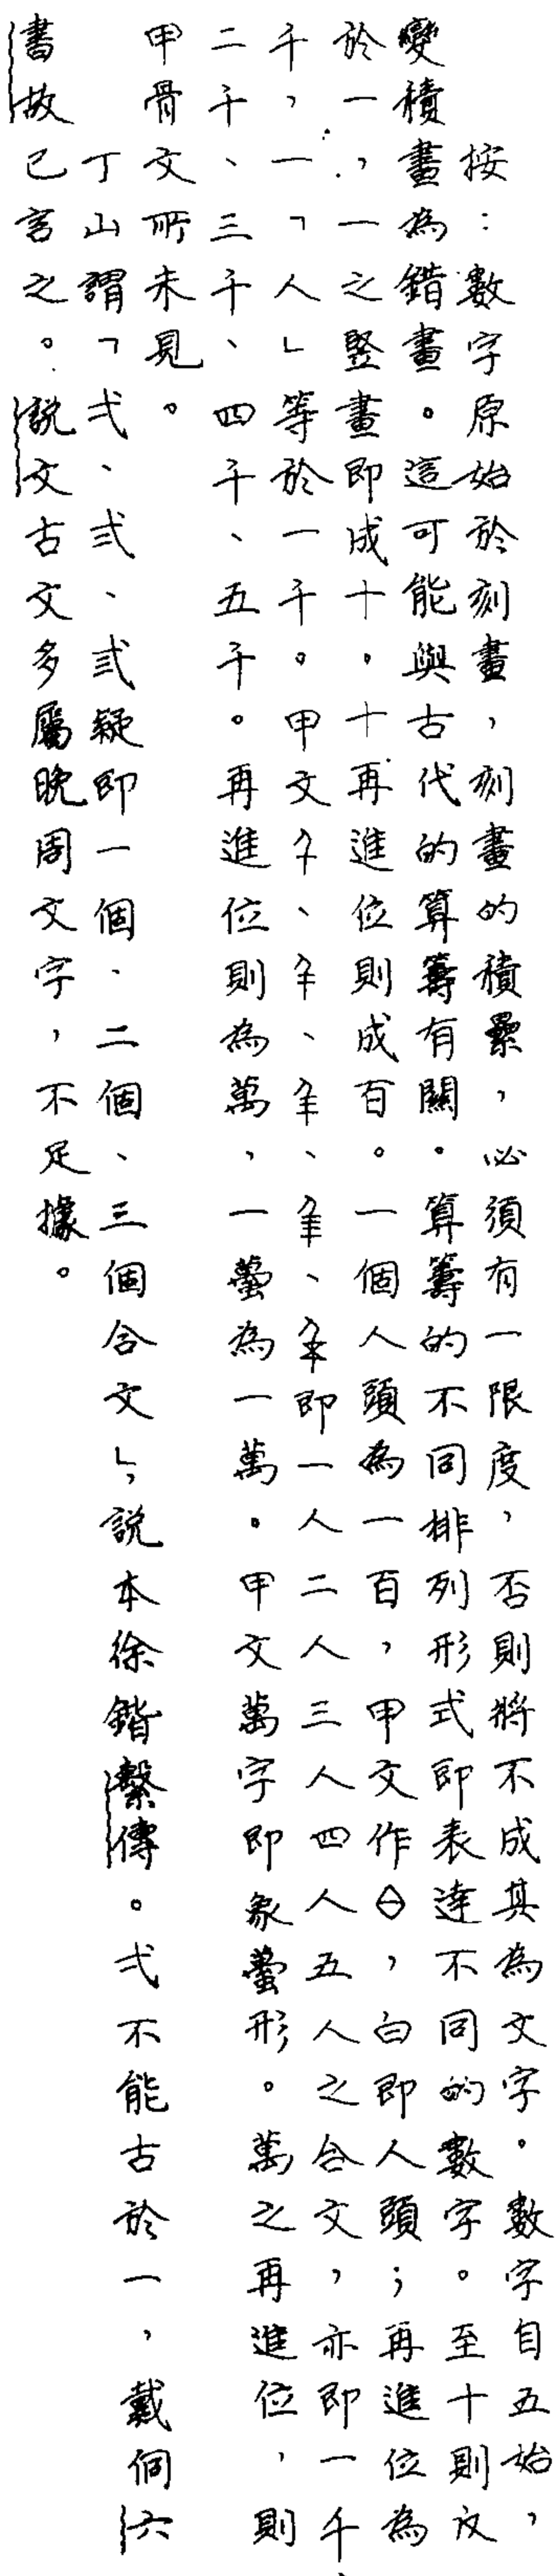 按：數字原始於刻畫，刻畫的積纍，必須有一限度，否則將不成其為文字。數字自五始，
變積畫為錯畫。這可能與古代的算籌有關。算籌的不同排列形式即表達不同的數字。至十則反
於一，一之豎畫即成十。十再進位則成百。一個人頭為一百，甲文作，白即人頭；再進位為
千，一「人」等於一千。甲文、、、、即一人二人三人四人五人之合文，亦即一千
二千、三千、四千、五千。再進位則為萬，一蠆為一萬。甲文萬字即象蠆形。萬之再進位，則
甲骨文所未見。
丁山謂「弌、弍、弎疑即一個、二個、三個合文」，說本徐鍇繫傳。弌不能古於一，戴侗六
書故已言之。說文古文多屬晚周文字，不足據。